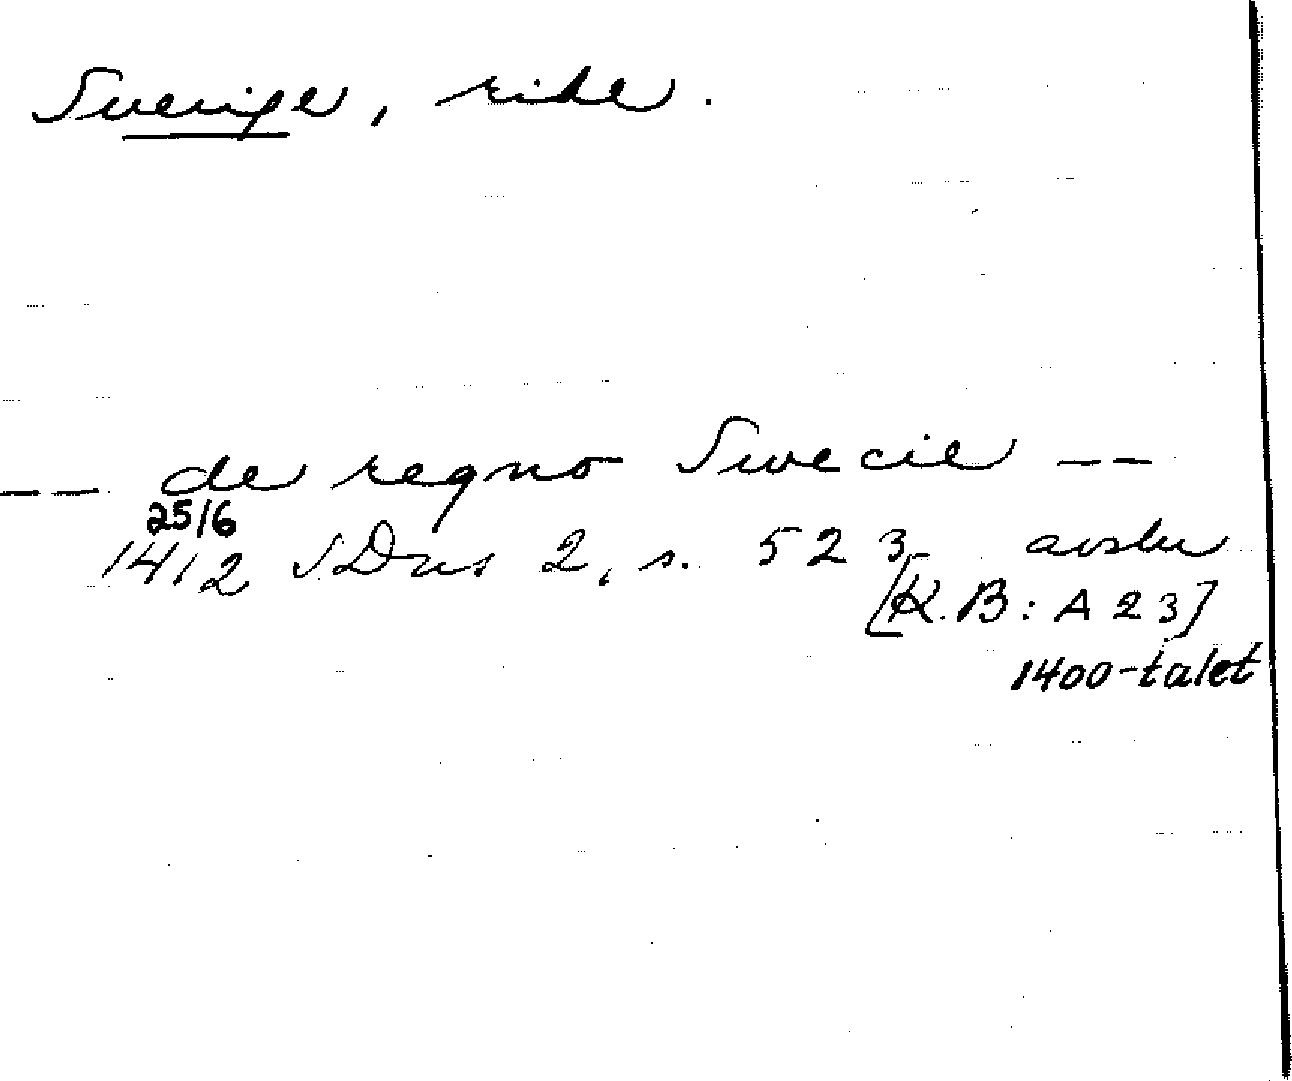 Sverige, rike.
-- de regno Swecie --
25/6
1412 SDns 2, s. 523 avskr
[K.B: A 23]
1400-talet